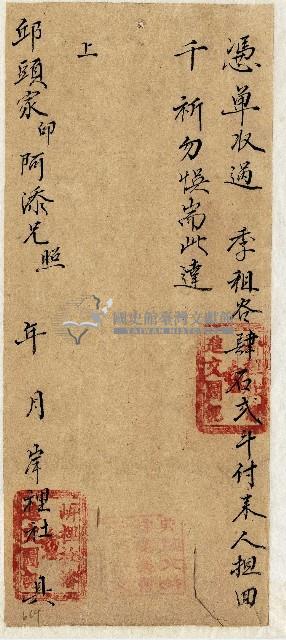 憑單收過　季租谷肆石弍斗付来人担回
千祈勿悞耑此達
上
邱頭家印阿添兄照　年　月　岸裡社　具
國史館臺灣文獻館
TAIWAN HISTORICA